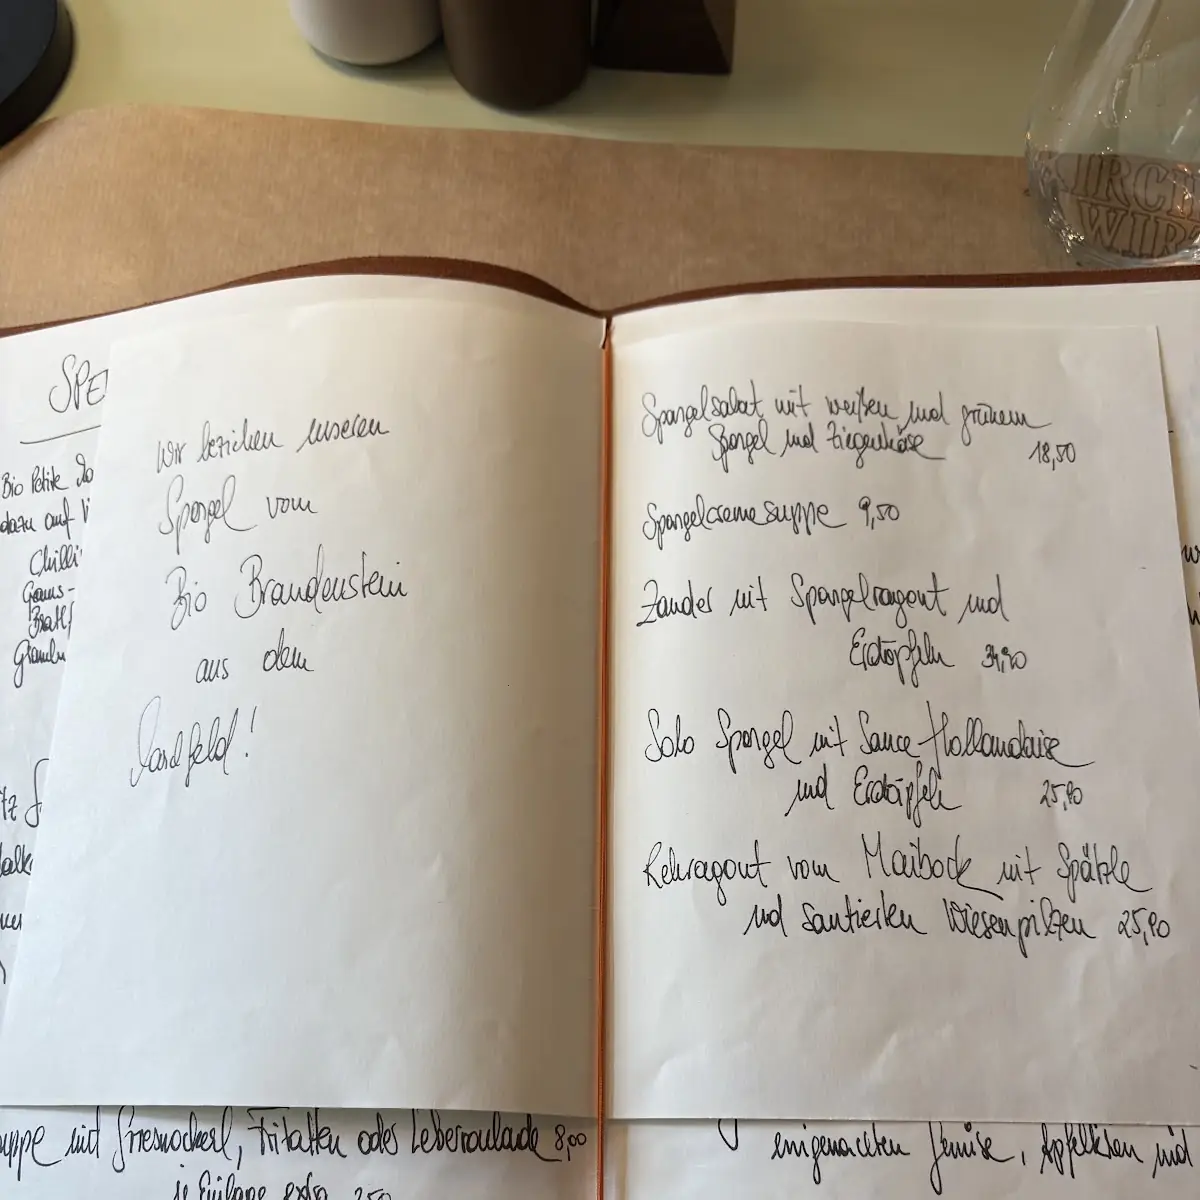 SPE
Bio Petite
dazu auf
Chilli
Gams-
Bratl
wir beziehen unseren
Spargel vom
Bio Brandenstein
aus dem
Marchfeld!
Spargelsalat mit weißen und grünem
Spargel und Ziegenkäse 18,50
Spargelcremesuppe 9,50
Zander mit Spargelragout und
Erdäpfeln 34,90
Solo Spargel mit Sauce Hollandaise
und Erdäpfeln 25,90
Rehragout vom Maibock mit Spätzle
und sautierten Wiesenpilzen 25,90
uppe mit Griesnockerl, Fritatten oder Leberroulade 8,00
je Einlage extra 2,50
eingemachten Gemüse, Apfelkren und
KIRCH
WIR